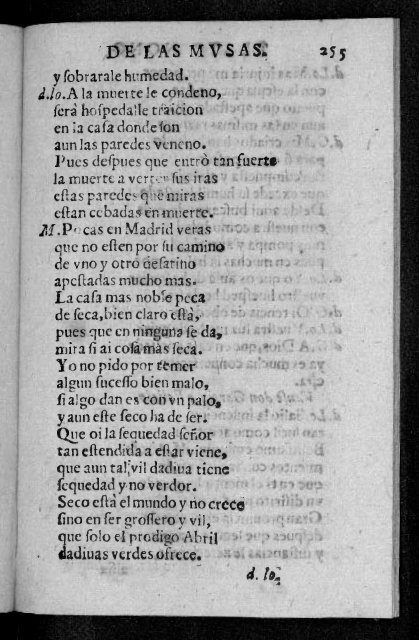 DE LAS MVSAS. 255
y sobrarale humedad.
d.lo. A la muerte le condeno,
será hospedalle traicion
en la casa donde son
aun las paredes veneno.
Pues despues que entrò tan fuerte
la muerte a verter sus iras
estas paredes que miras
estan cebadas en muerte.
M. Pocas en Madrid veras
que no esten por su camino
de vno y otro desatino
apestadas mucho mas.
La casa mas noble peca
de seca, bien claro està,
pues que en ninguna se da,
mira si ai cosa mas seca.
Yo no pido por temer
algun sucesso bien malo,
si algo dan es con vn palo,
y aun este seco ha de ser.
Que oi la sequedad señor
tan estendida a estar viene,
que aun tal vil dadiua tiene
sequedad y no verdor.
Seco està el mundo y no crece
sino en ser grossero y vil,
que solo el prodigo Abril
dadiuas verdes ofrece.
d. lo.